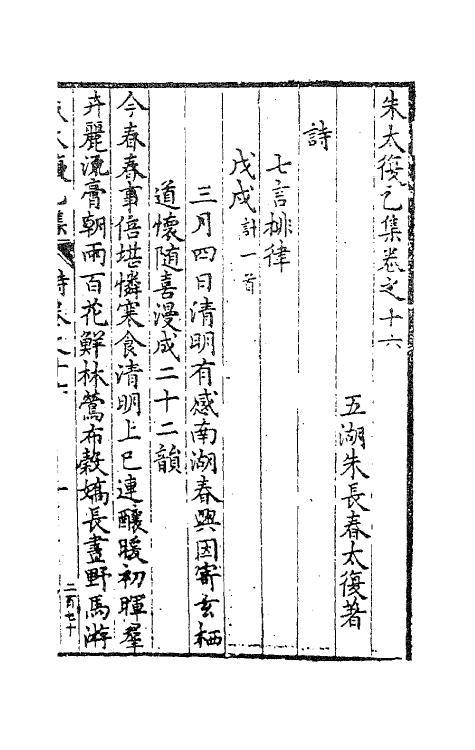 朱太復乙集卷之十六
五湖朱長春太復著
詩
七言排律
戊戌計一首
三月四日清明有感南湖春興因寄玄栖
道懷随喜漫成二十二韻
今春春事倍堪憐寒食清明上巳連釀暖初暉羣
卉麗流膏朝雨百花鮮林鶯布穀嬌長晝野馬游
二百七十